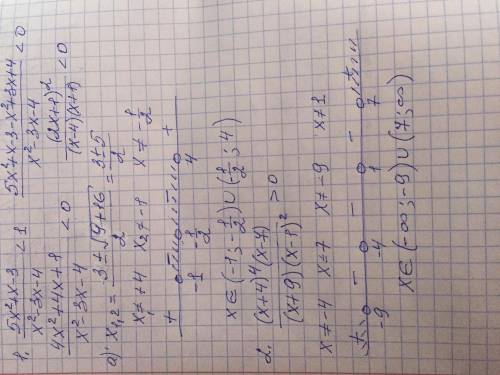 1. (5x²+x-3)/(x²-3x-4) < 1    (5x²+x-3-x²+3x+4)/(x²-3x-4) < 0
(4x²+4x+1)/(x²-3x-4) < 0    (2x+1)²/((x-4)(x+1)) < 0
a) x₁,₂ = (3±√(9+16))/2 = (3±5)/2
x₁ ≠ +4    x₂ ≠ -1    x ≠ -1/2
+ - - +
-1    -1/2    4
x∈(-1; -1/2)∪(-1/2; 4)
2. ((x+4)⁴(x-7))/((x+9)(x-1)²) > 0
x ≠ -4    x ≠ 7    x ≠ -9    x ≠ 1
+ - - - +
-9    -4    1    7
x∈(-∞; -9)∪(7; ∞)